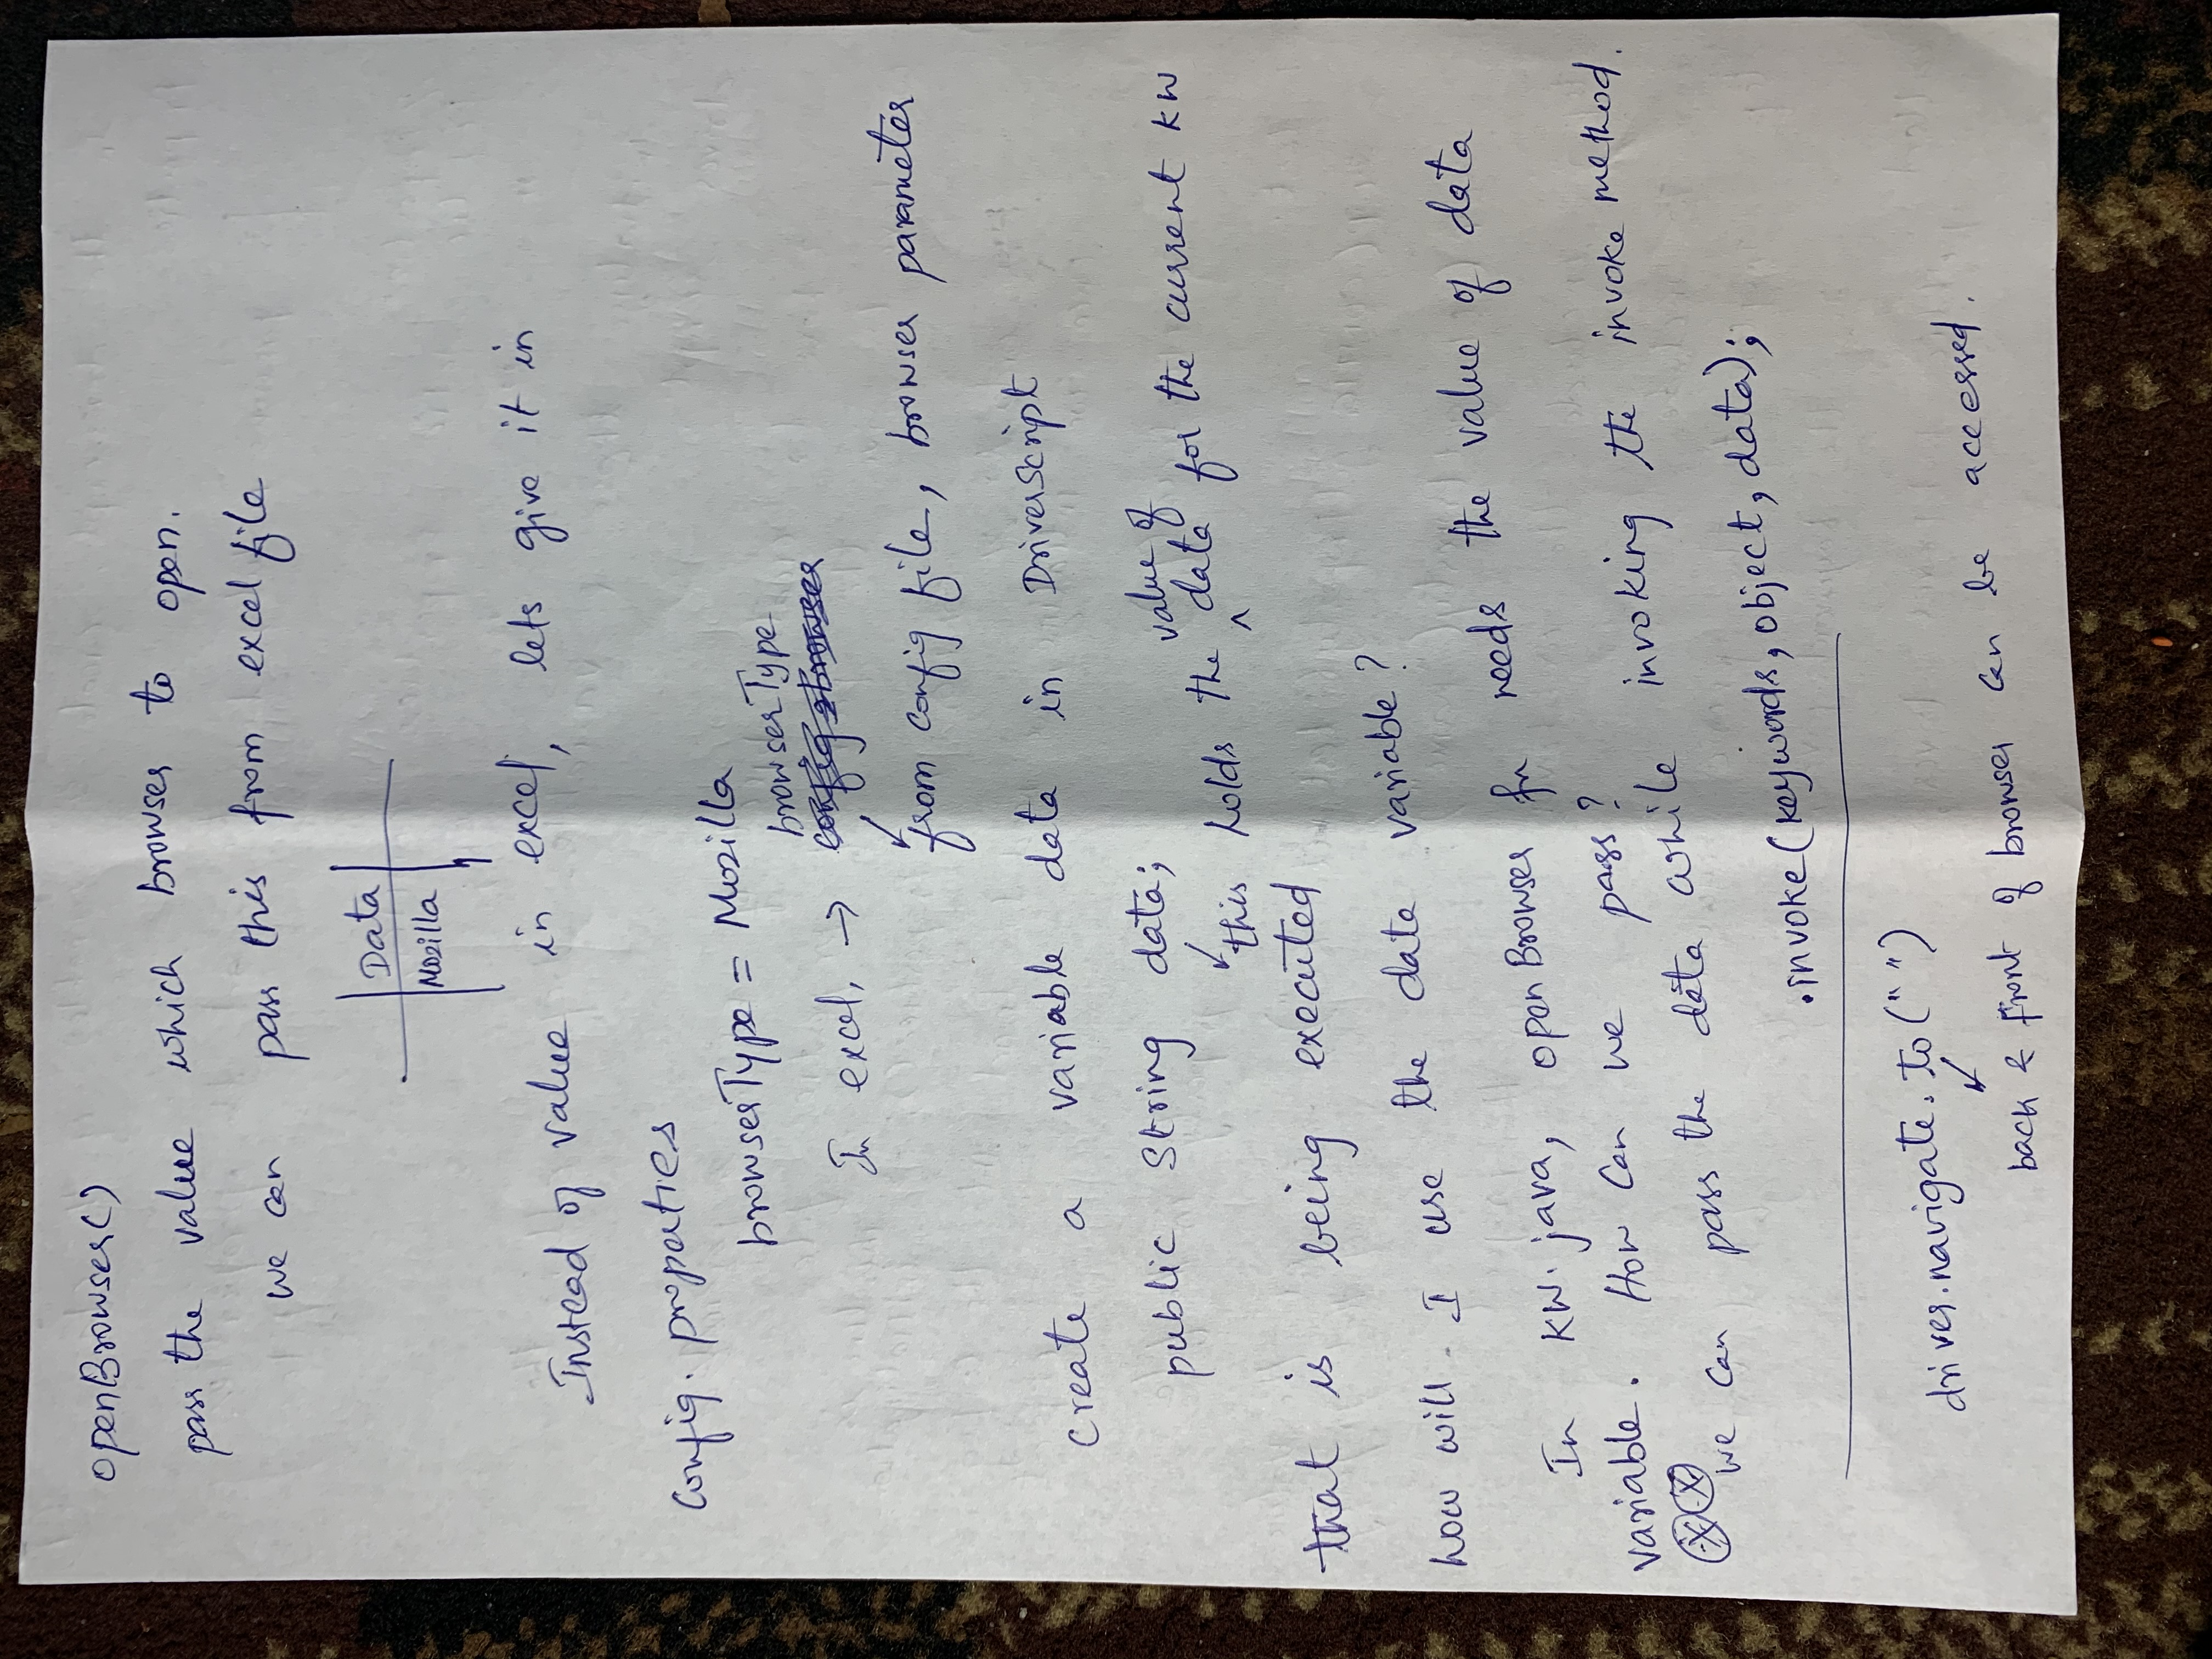 openBrowser()
pass the value which browser to open.
we can pass this from excel file
Data
Mozilla
Instead of value in excel, lets give it in
Config. properties
browserType = Mozilla
browserType
In excel, → config browser
from config file, browser parameter
create a variable data in DriverScript
public String data;
value of
this holds the ^ data for the current KW
that is being executed
how will I use the data variable?
In KW. java, openBrowser fn needs the value of data
variable. How can we pass?
we can pass the data while invoking the invoke method.
.invoke(keywords, object, data);
driver.navigate.to(" ")
back & front of browser can be accessed.